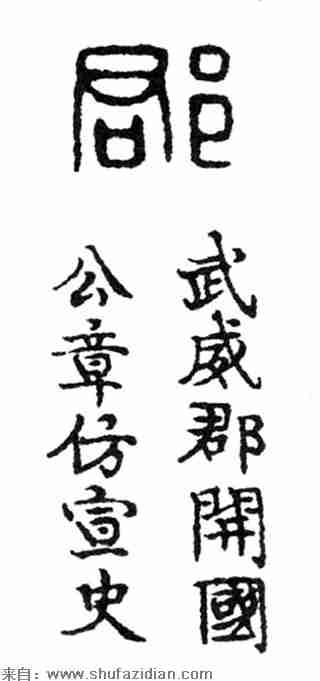 郡
武威郡開國
公章仿宣史
来自：www.shufazidian.com